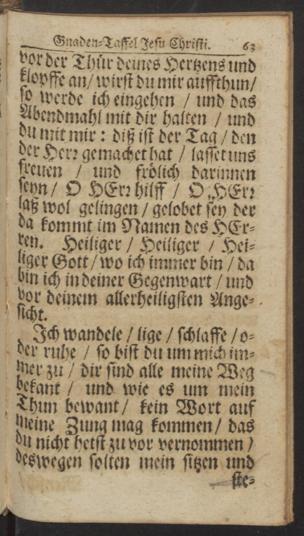 Gnaden-Taffel Jesu Christi. 63
vor der Thür deines Hertzens und
klopffe an / wirst du mir auffthun /
so werde ich eingehen / und das
Abendmahl mit dir halten / und
du mit mir : diß ist der Tag / den
der Herr gemachet hat / lasset uns
freuen / und frölich darinnen
seyn / O HErr hilff / O HErr
laß wol gelingen / gelobet sey der
da kommt im Namen des HEr-
ren. Heiliger / Heiliger / Hei-
liger Gott / wo ich immer bin / da
bin ich in deiner Gegenwart / und
vor deinem allerheiligsten Ange-
sicht.
Ich wandele / lige / schlaffe / o-
der ruhe / so bist du um mich im-
mer zu / dir sind alle meine Weg
bekant / und wie es um mein
Thun bewant / kein Wort auf
meine Zung mag kommen / das
du nicht hetst zu vor vernommen /
deswegen solten mein sitzen und
ste-